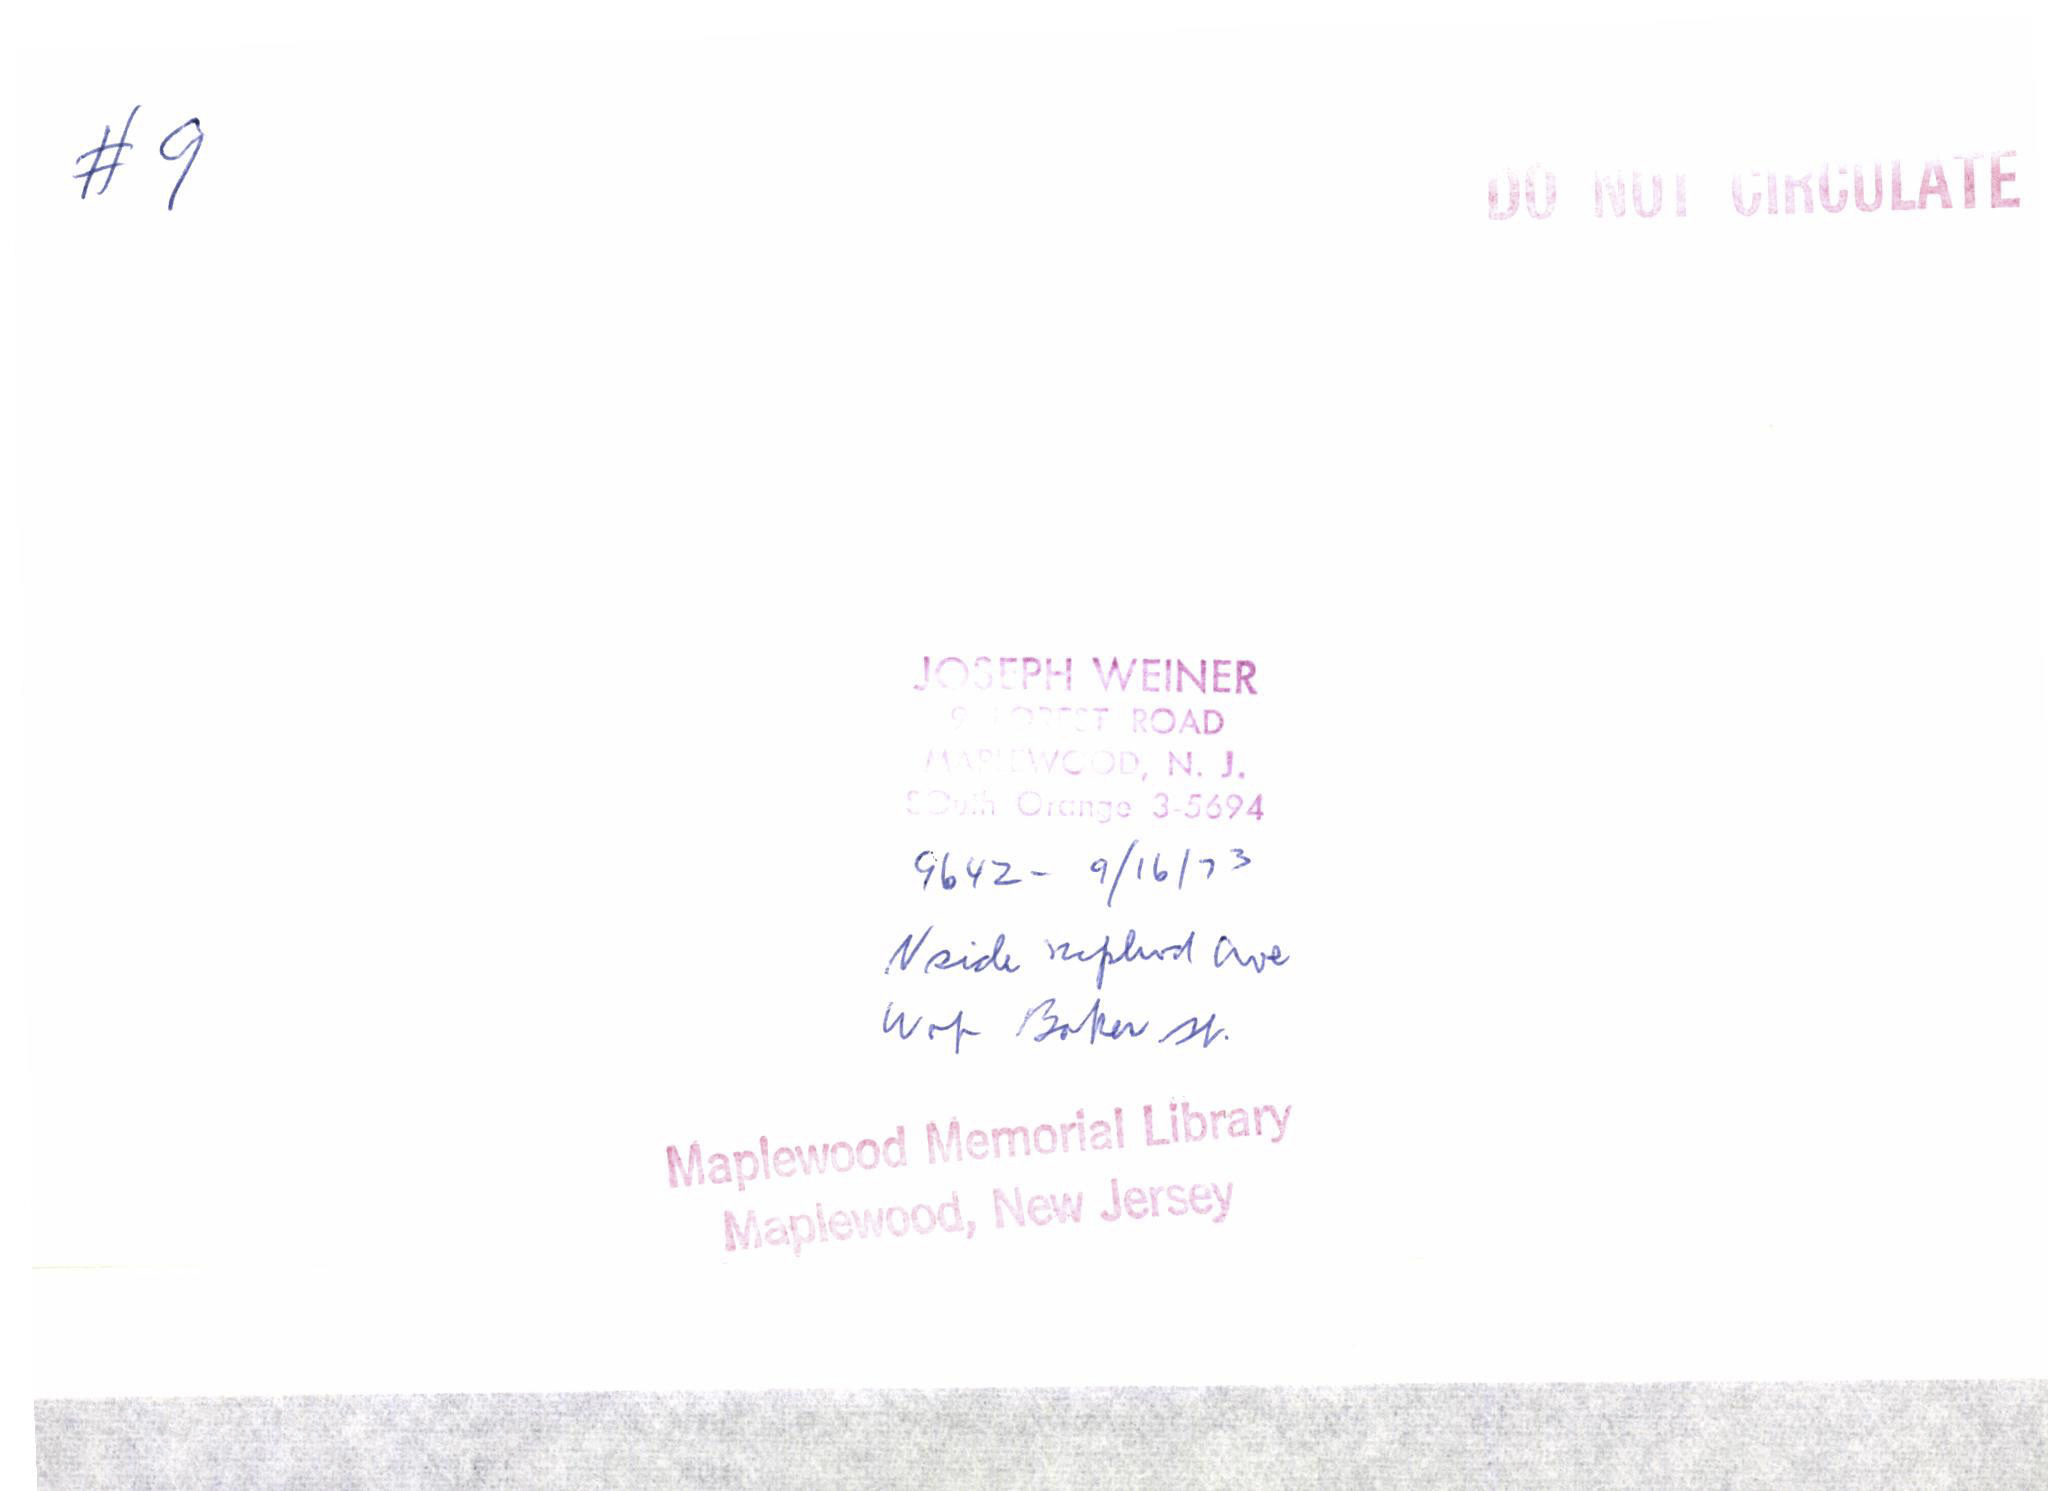 #9
DO NOT CIRCULATE
JOSEPH WEINER
9 FOREST ROAD
MAPLEWOOD, N. J.
SOuth Orange 3-5694
9642- 9/16/73
N side Ave
W of Baker St.
Maplewood Memorial Library
Maplewood, New Jersey